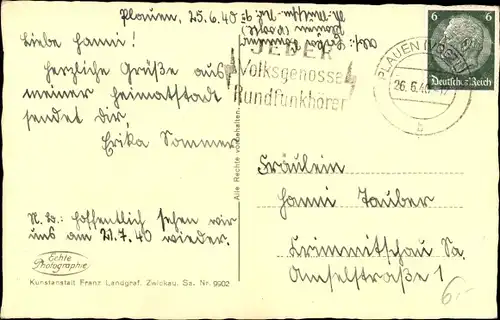 Plauen, 25.6.40
Liebe Hanni!
Herzliche Grüße aus
meiner Heimatstadt
sendet dir,
Erika Sommer
N. B.: Hoffentlich sehen wir
uns am 21.7.40 wieder.
Echte
Photographie
Kunstanstalt Franz Landgraf, Zwickau, Sa. Nr. 9902
Alle Rechte vorbehalten
Abs.: Erika Sommer
JEDER
Volksgenosse
Rundfunkhörer
PLAUEN (VOGTL)
26.6.40
b
6 6
Deutsches Reich
Fräulein
Hanni Tauber
Crimmitschau Sa.
Amselstraße 1
6.-